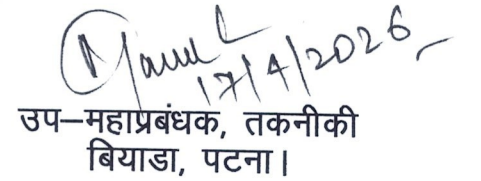 17/4/2026
उप–महाप्रबंधक, तकनीकी
बियाडा, पटना।